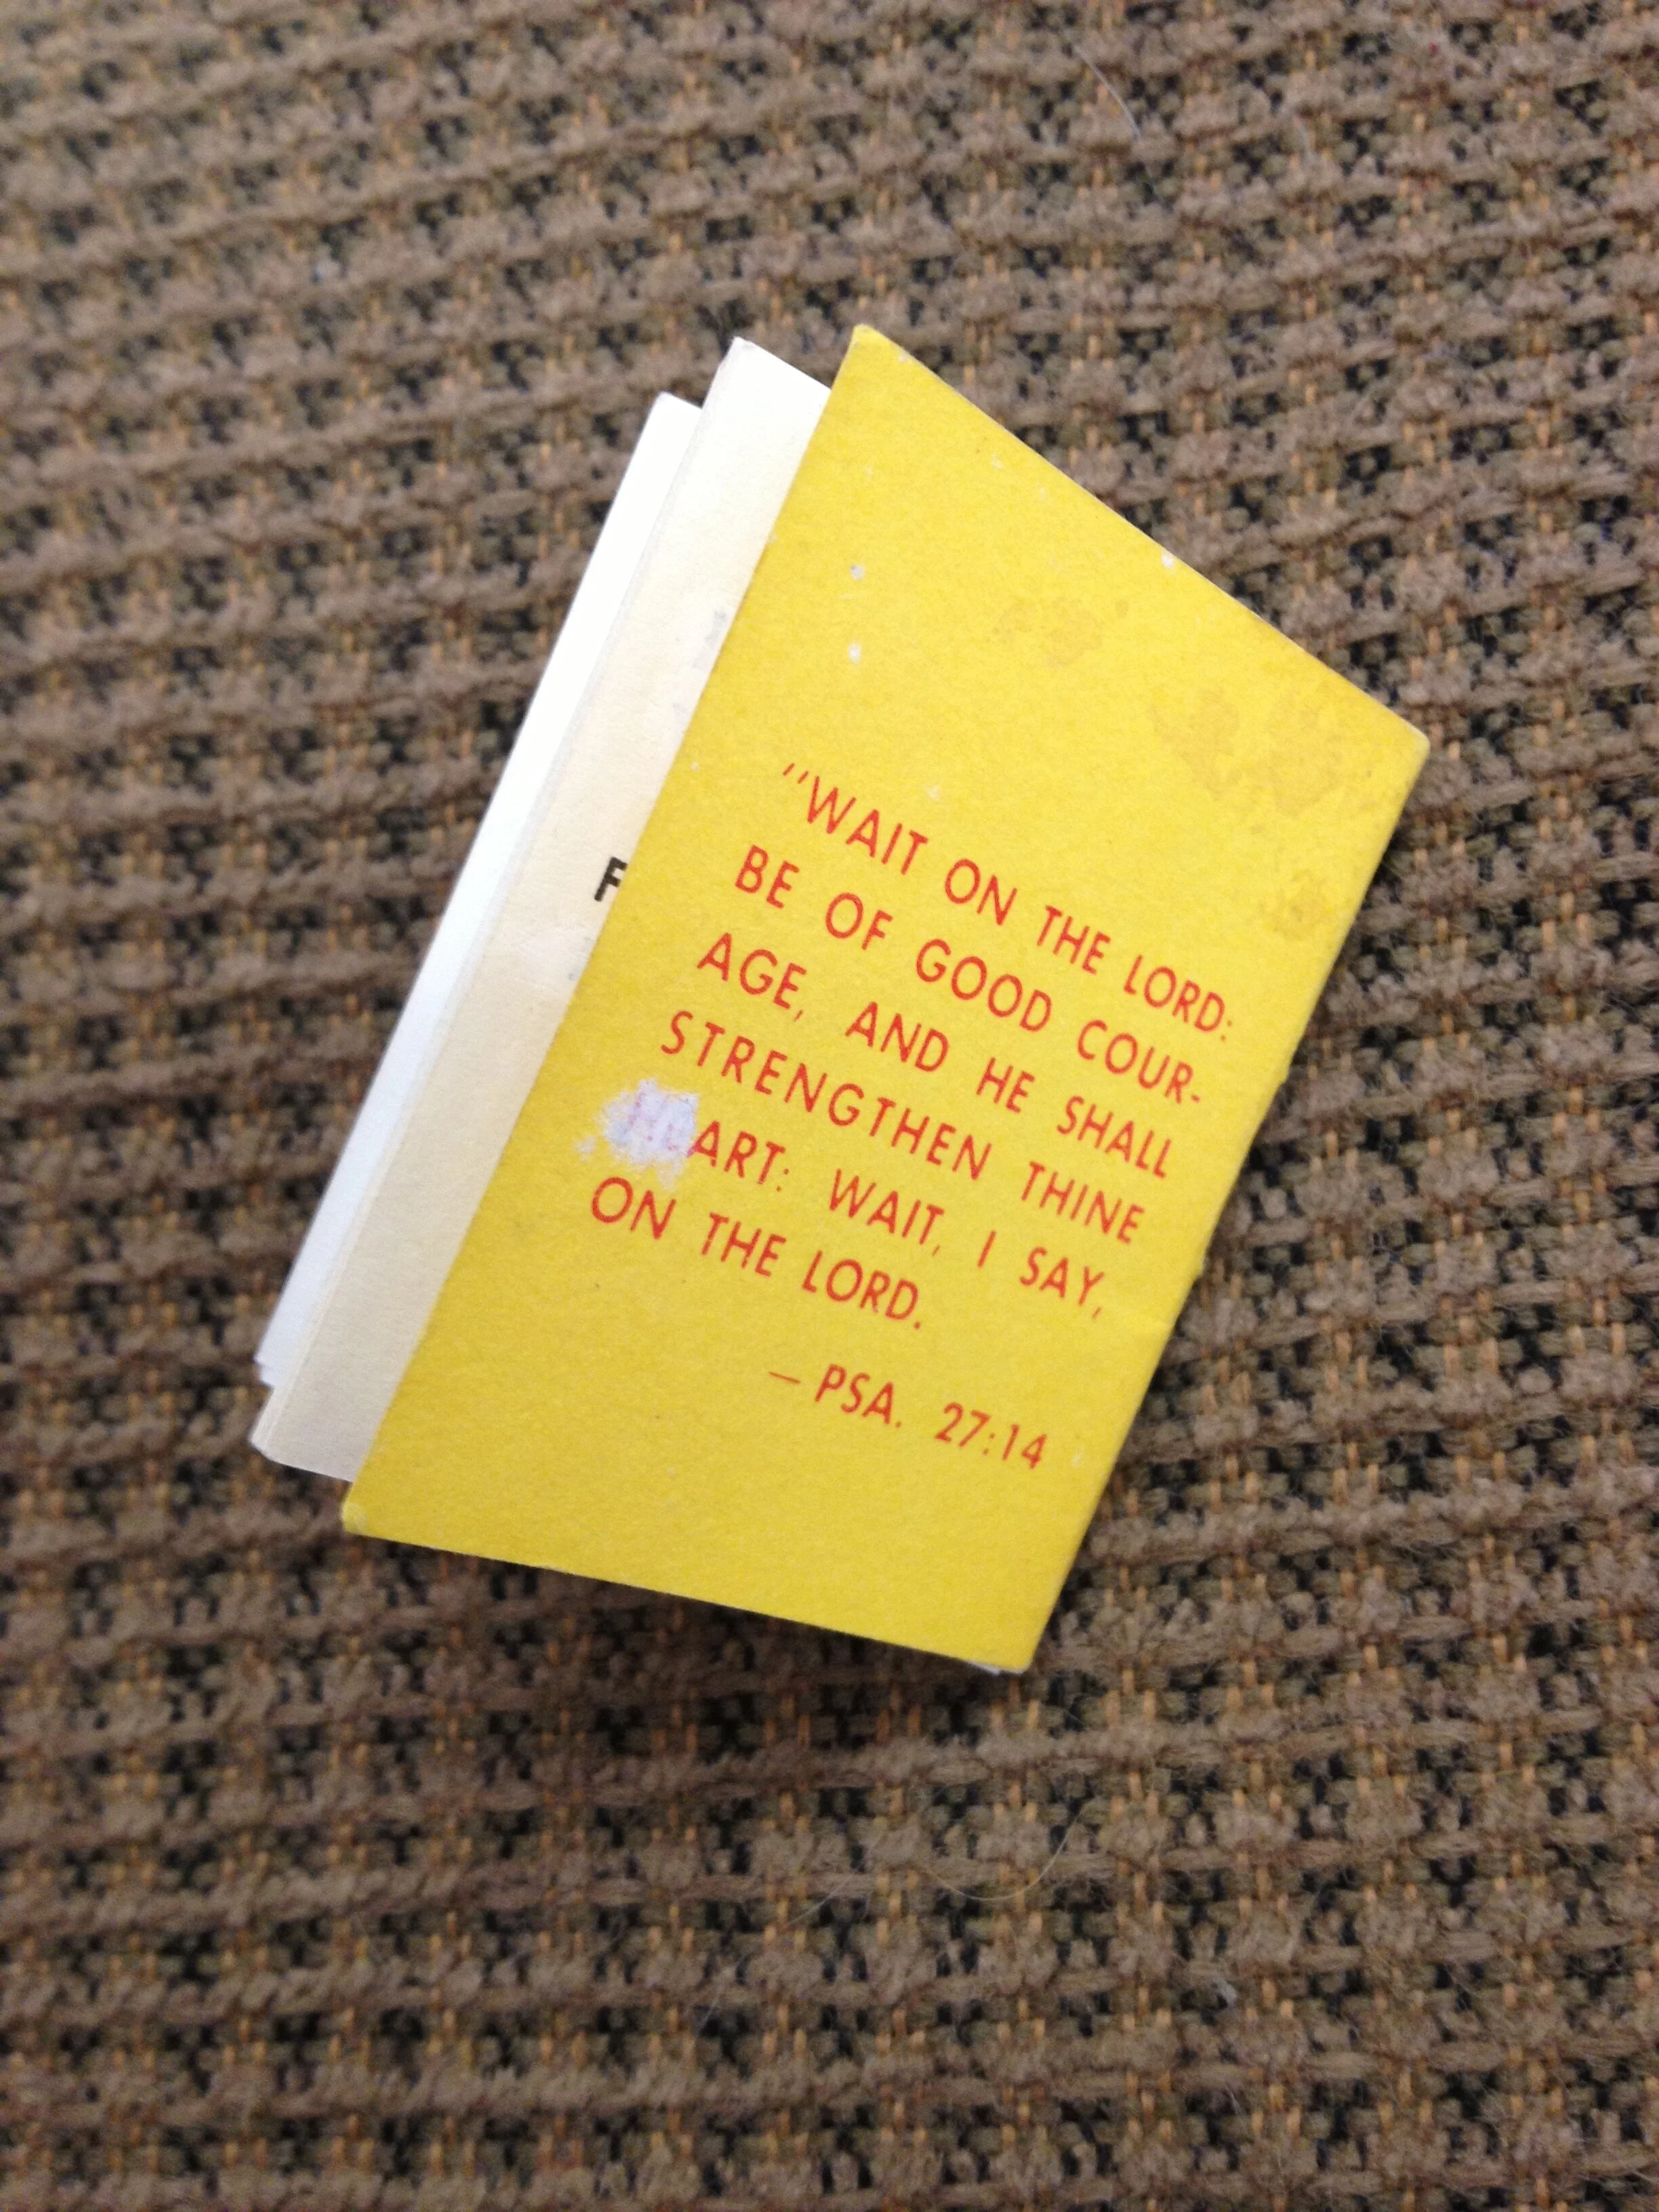 "WAIT ON THE LORD:
BE OF GOOD COUR-
AGE, AND HE SHALL
STRENGTHEN THINE
HEART: WAIT, I SAY,
ON THE LORD.
— PSA. 27:14
F